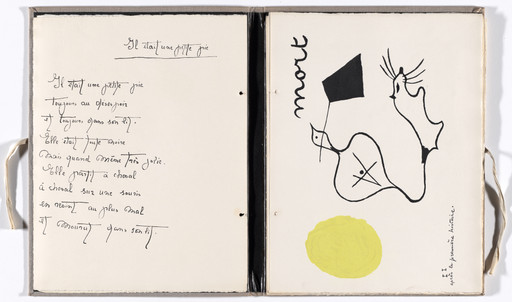 Il était une petite pie
Il était une petite pie
toujours au desespoir
et toujours dans son lit.
Elle était toute noire
mais quand même très jolie.
Elle partit à cheval
à cheval sur une souris
en revint au plus mal
et mourut dans son lit.
mort
après la première histoire.